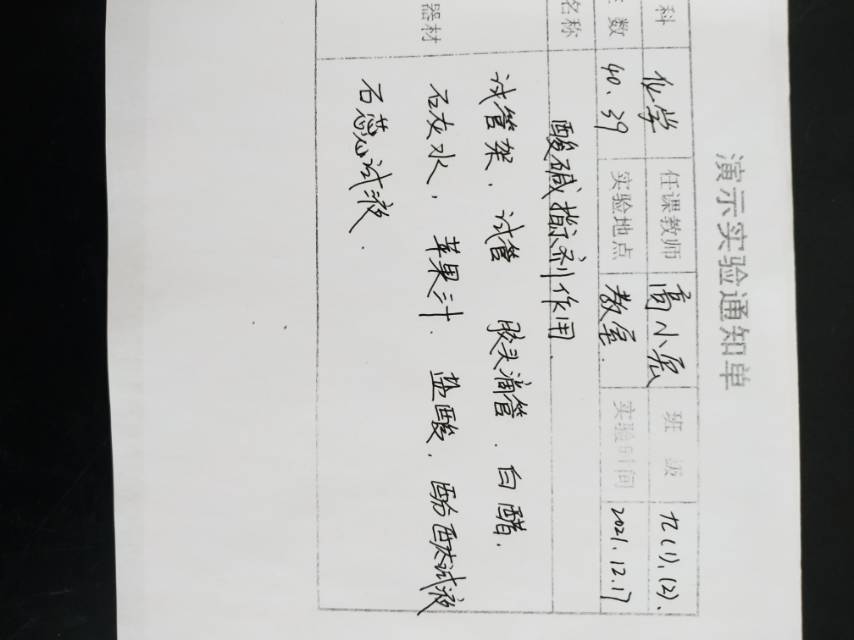 演示实验通知单
科 化学 任课教师 高小宏 班 级 九(1)、(2)、
数 40、39 实验地点 教室. 实验时间 2021.12.17
名称 酸碱指示剂作用.
器材 试管架、试管 胶头滴管、白醋、
石灰水,苹果汁、盐酸、酚酞试液
石蕊试液.